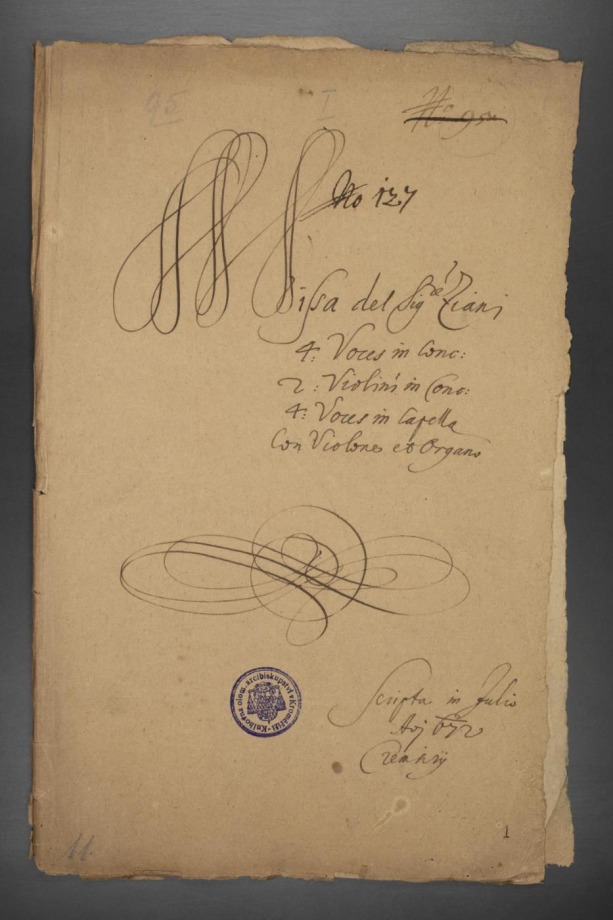 95 I No 95
No 127
Missa del Sig.re Ziani
4: Voces in Conc:
2: Violini in Conc:
4: Voces in Capella
Con Violone et Organo
Knihovna olom. arcibiskupství v Kroměříži
Scripta in Julio
672
Cremsirij
1
11